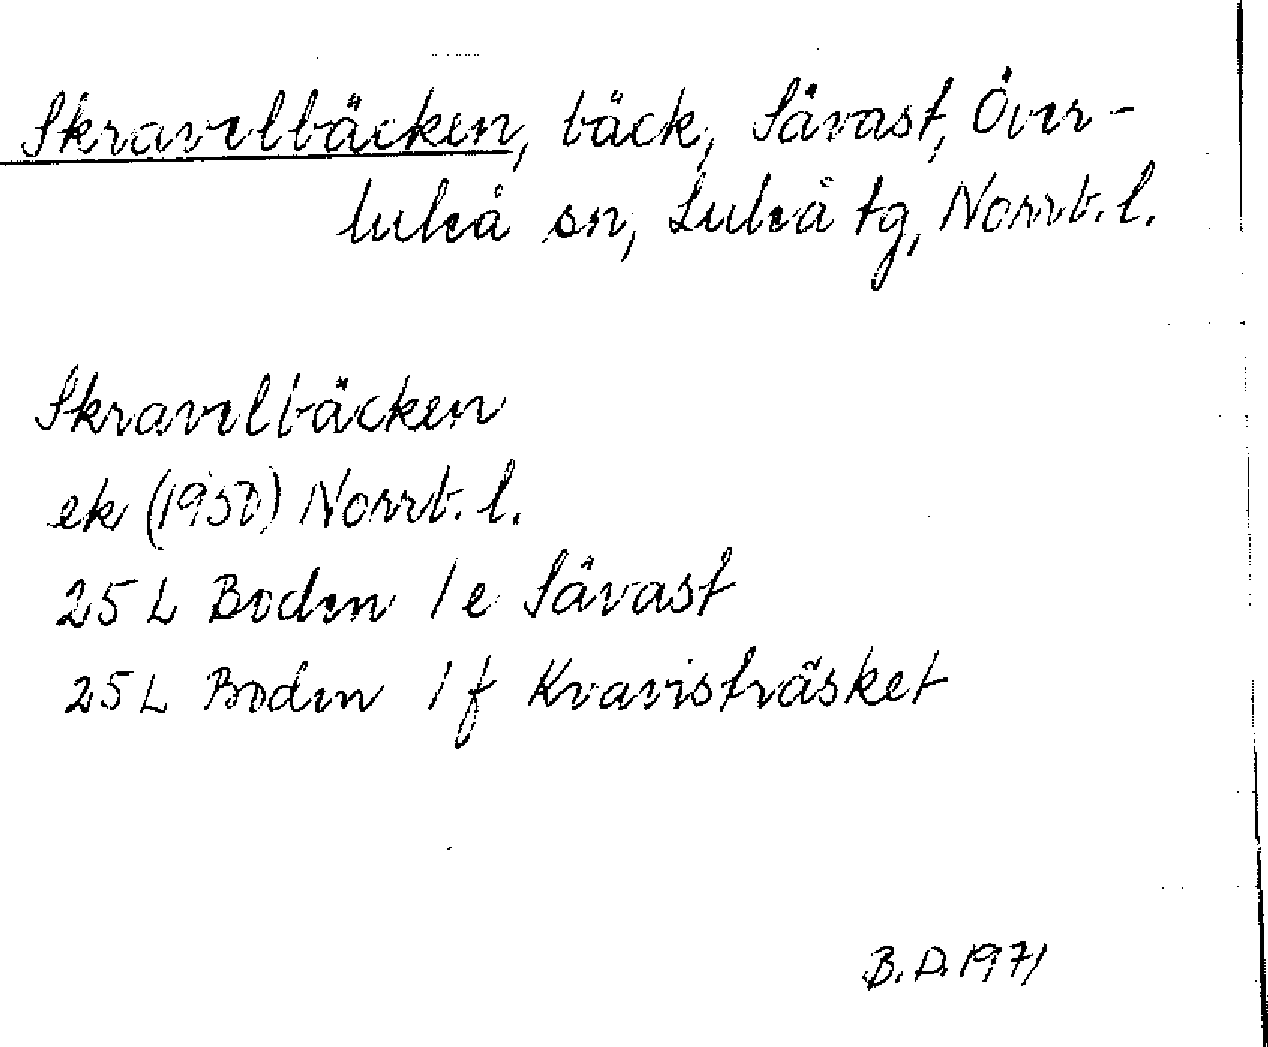 Skravelbäcken, bäck, Sävast, Över-
luleå sn, Luleå tg, Norrb. l.
Skravelbäcken
ek (1950) Norrb. l.
25 L Boden 1 e Sävast
25 L Boden 1 f Kvavisträsket
B. D. 1971